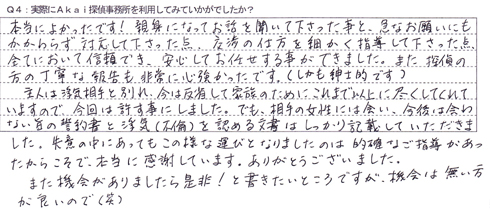 Q4：実際にAkai探偵事務所を利用してみていかがでしたか？
本当によかったです！親身になってお話を聞いて下さった事と、急なお願いにも
かかわらず対応して下さった点、応渉の仕方を細かく指導して下さった点
全てにおいて信頼でき、安心してお任せする事ができました。また探偵の
方の丁寧な報告も非常に心強かったです。（しかも紳士的です）
主人は浮気相手と別れ、今は反省して家族のためにこれまで以上に尽くしてくれて
いますので、今回は許す事にしました。でも、相手の女性には会い、今後は会わ
ない旨の誓約書と浮気（不倫）を認める文書はしっかり記載していただきま
した。失意の中にあってもこの様な運びとなりましたのは的確なご指導があっ
たからこそで、本当に感謝しています。ありがとうございました。
また機会がありましたら是非！と書きたいところですが、機会は無い方
が良いので（笑）